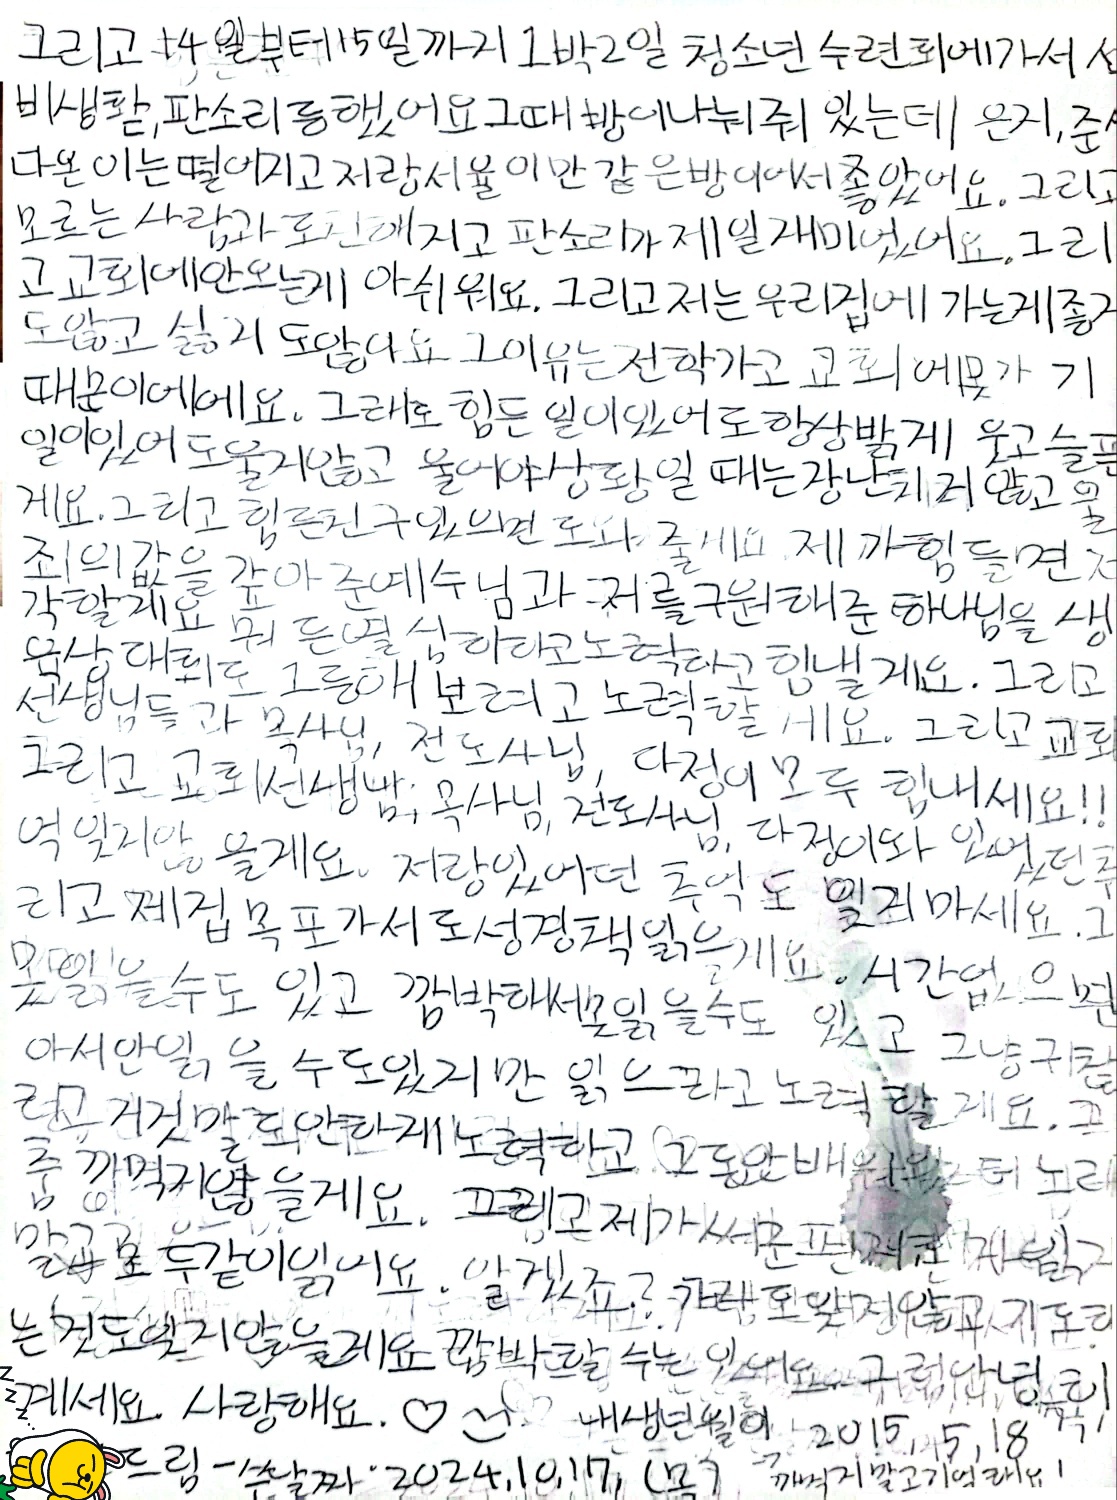 그리고 14일부터 15일까지 1박2일 청소년 수련회에가서 선
비생활, 판소리 등했어요 그때 방이나눠줘 있는데 은지, 준서
다온이는떨어지고 저랑서율이만 같은방이어서좋았어요. 그리고
모르는 사람과 도친해지고 판소리가제일재미있었어요. 그리
고 교회에안오는게 아쉬워요. 그리고저는 우리집에 가는게좋지
도않고 싫지 도않아요 그이유는전학가고 교회에못가 기
때문이에에요. 그래도 힘든 일이있어도항상밝게 웃고슬픈
일이있어도울지않고 울어야상황일 때는장난치지 않고울
게요. 그리고 힘든친구있으면 도와 줄게요 제가힘들면 저
죄의값을 갚아 준예수님과 저를구원해준 하나님을 생
각할게요 뭐든열심히하고노력하고 힘낼게요. 그리고
묵상대회도 그등해 보려고 노력할 게요. 그리고 교회
선생님들과 목사님, 전도사님, 다정이 모두 힘내세요!!
그리고 교회선생님, 목사님, 전도사님, 다정이와 있었던추
억 잊지않 을게요. 저랑있어던 추억도 잊지마세요. 그
리고 제집 목포가서도성경책읽으을게요. 시간없으면
못읽을수도 있고 깜박해서못읽을수도 있고 그냥귀찮
아서안읽을 수도있지만 읽으라고노력할게요. 그
리고 거짓말도안하게노력하고 그동안배워왔던 노래
춤 까먹지않을게요. 그리고제가써준편지
말고모두같이읽어요. 알겠죠? 도잊지않고 기도하
는것도잊지않을게요 깜박할 수는있어요. 그럼안녕히
계세요. 사랑해요. ♡ 내생년월일 2015, 5, 18
드림- 날짜: 2024.10.17. (목) 까먹지말고기억해요!